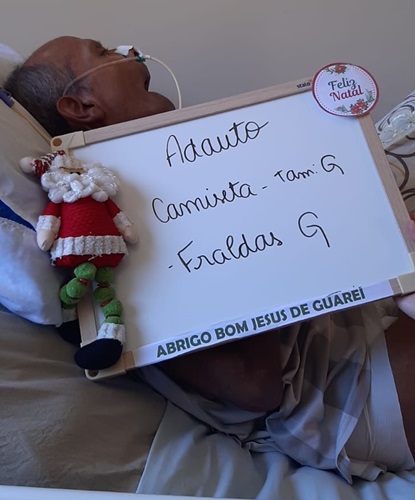 Feliz
Natal
Adauto
Camiseta - Tam: G
- Fraldas G
ABRIGO BOM JESUS DE GUAREÍ